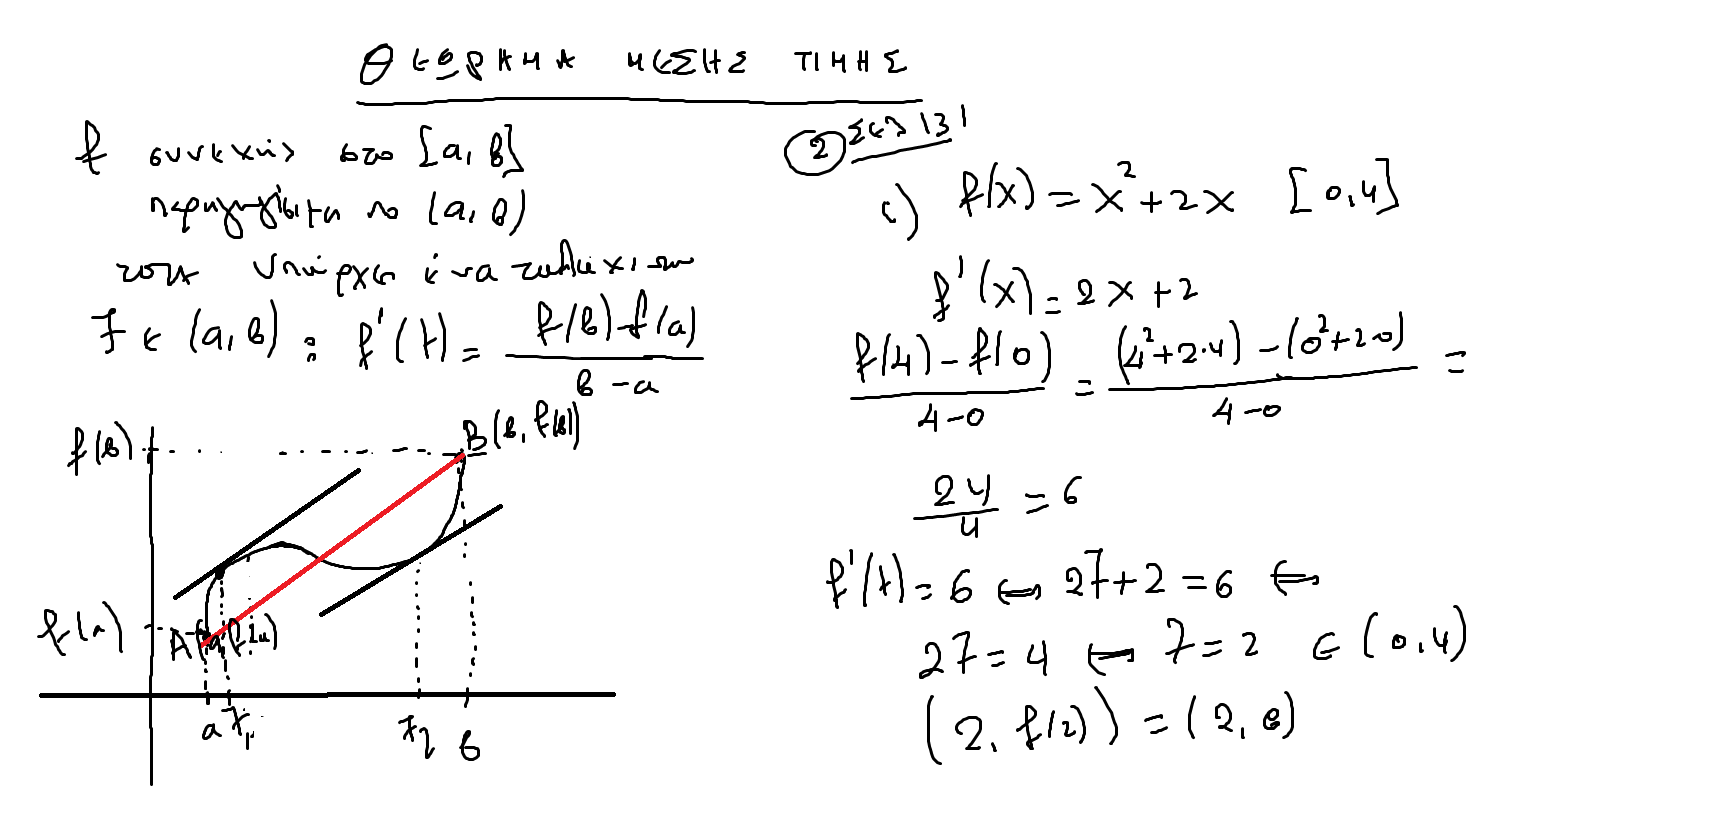 ΘΕΩΡΗΜΑ ΜΕΣΗΣ ΤΙΜΗΣ
f συνεχής στο [α, β]
παραγωγίσιμη στο (α, β)
τότε υπάρχει ένα τουλάχιστον
ξ ∈ (α, β) : f'(ξ) = \frac{f(β) - f(α)}{β - α}
f(β)
B(β, f(β))
f(α)
A(α, f(α))
α ξ₁ ξ₂ β
② Σελ 131
c) f(x) = x² + 2x [0,4]
f'(x) = 2x + 2
\frac{f(4) - f(0)}{4-0} = \frac{(4² + 2·4) - (0² + 2·0)}{4-0} =
\frac{24}{4} = 6
f'(ξ) = 6 ⇔ 2ξ + 2 = 6 ⇔
2ξ = 4 ⇔ ξ = 2 ∈ (0,4)
(2, f(2)) = (2, 8)